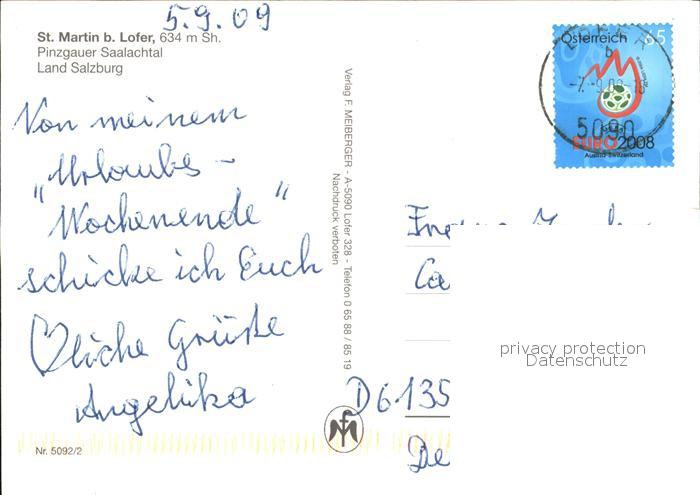 5.9.09
St. Martin b. Lofer, 634 m Sh.
Pinzgauer Saalachtal
Land Salzburg
Von meinem
„Urlaubs-
Wochenende“
schicke ich Euch
♡liche Grüße
Angelika
Nr. 5092/2
Verlag F. MEIBERGER - A-5090 Lofer 328 - Telefon 0 65 88 / 85 19
Nachdruck verboten
Österreich 65
5090
EURO2008
Austria-Switzerland
Ca
D 6135
De
privacy protection
Datenschutz